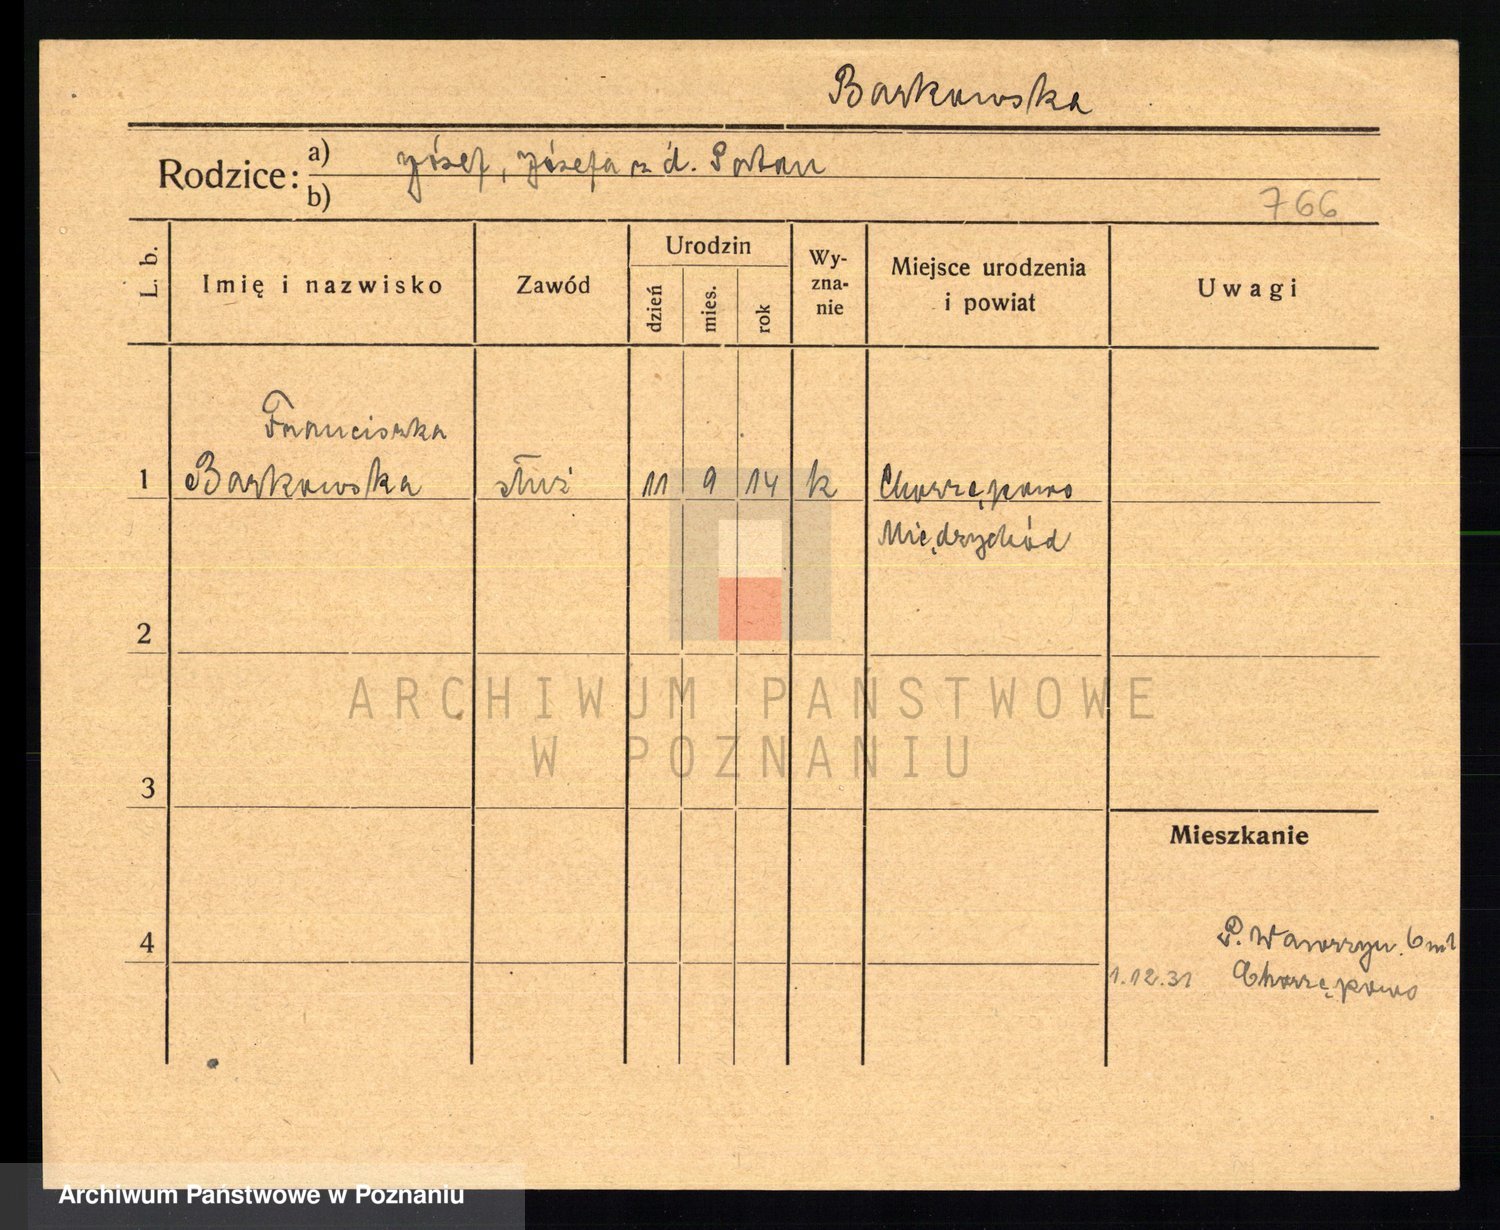 Barkowska
Rodzice: a) Józef, Józefa z d. Partan
b)
766
L. b. Imię i nazwisko Zawód Urodzin dzień mies. rok Wy-zna-nie Miejsce urodzenia i powiat Uwagi
Franciszka
1 Barkowska służ 11 9 14 k Chorzępowo
Międzychód
2
ARCHIWUM PAŃSTWOWE
W POZNANIU
3
Mieszkanie
P. Wawrzyn. 6 m1
4
1.12.31 Chorzępowo
Archiwum Państwowe w Poznaniu